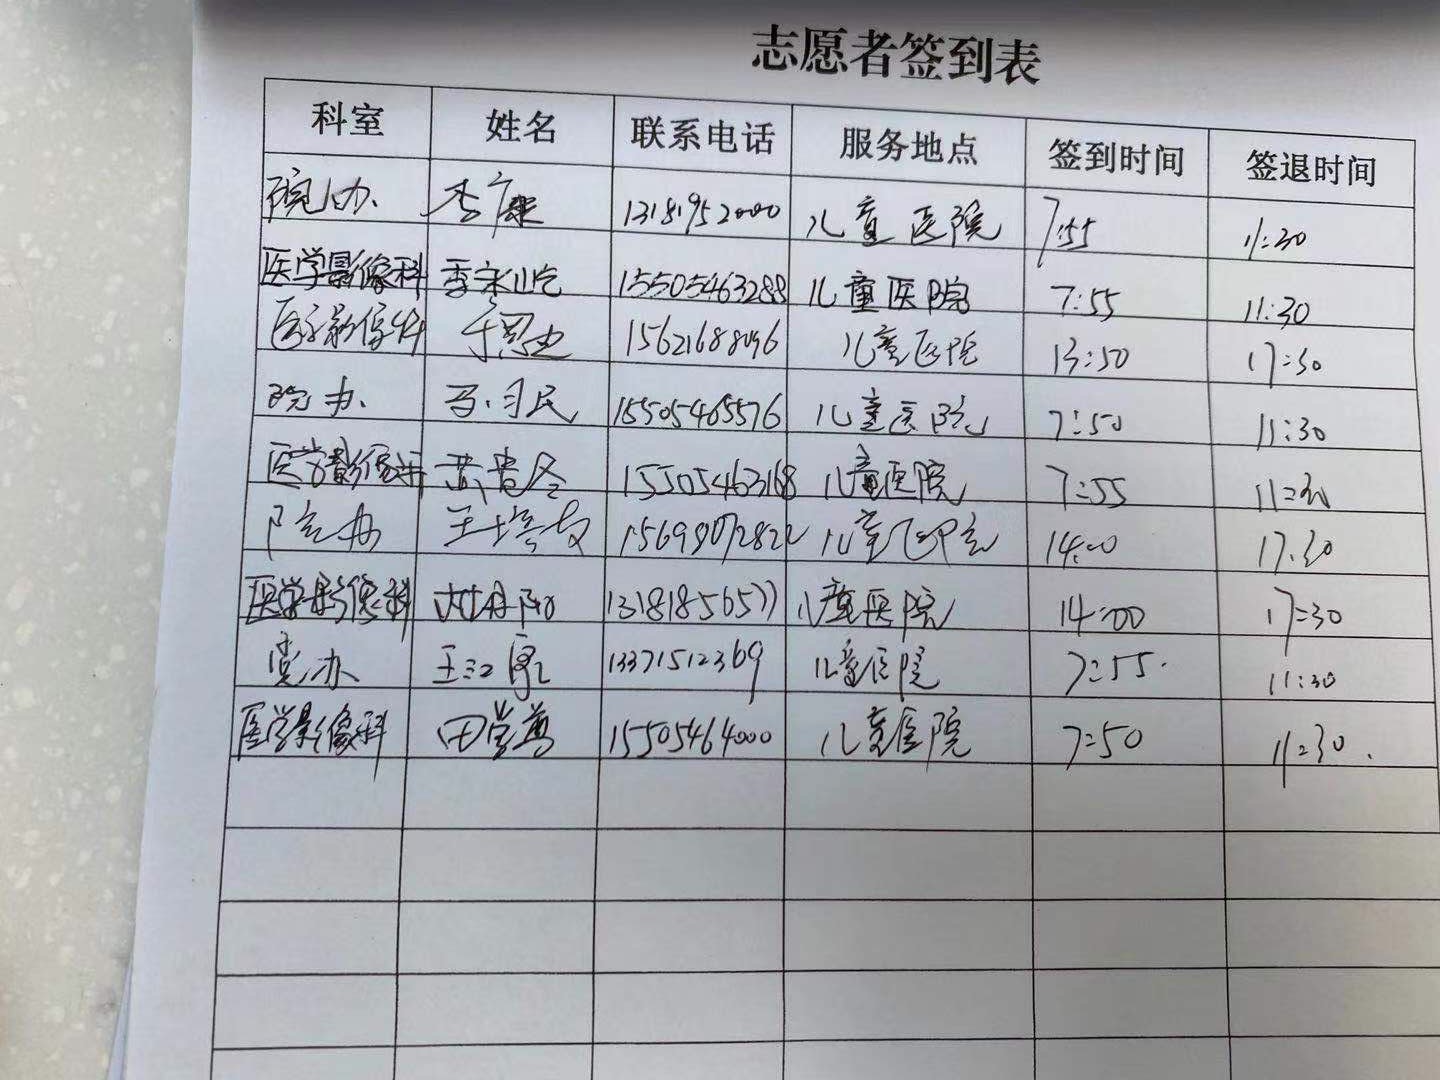 志愿者签到表
科室 姓名 联系电话 服务地点 签到时间 签退时间
院办 李康 13181952000 儿童医院 7:55 11:30
医学影像科 季宋屹 15505463288 儿童医院 7:55 11:30
医学影像科 15621688096 儿童医院 13:50 17:30
院办 马习民 15505465576 儿童医院 7:50 11:30
医学影像科 15505463168 儿童医院 7:55 11:30
院办 王培 儿童医院 14:00 17:30
医学影像科 13181856577 儿童医院 14:00 17:30
党办 王 13371512369 儿童医院 7:55 11:30
医学影像科 田学尊 15505464000 儿童医院 7:50 11:30